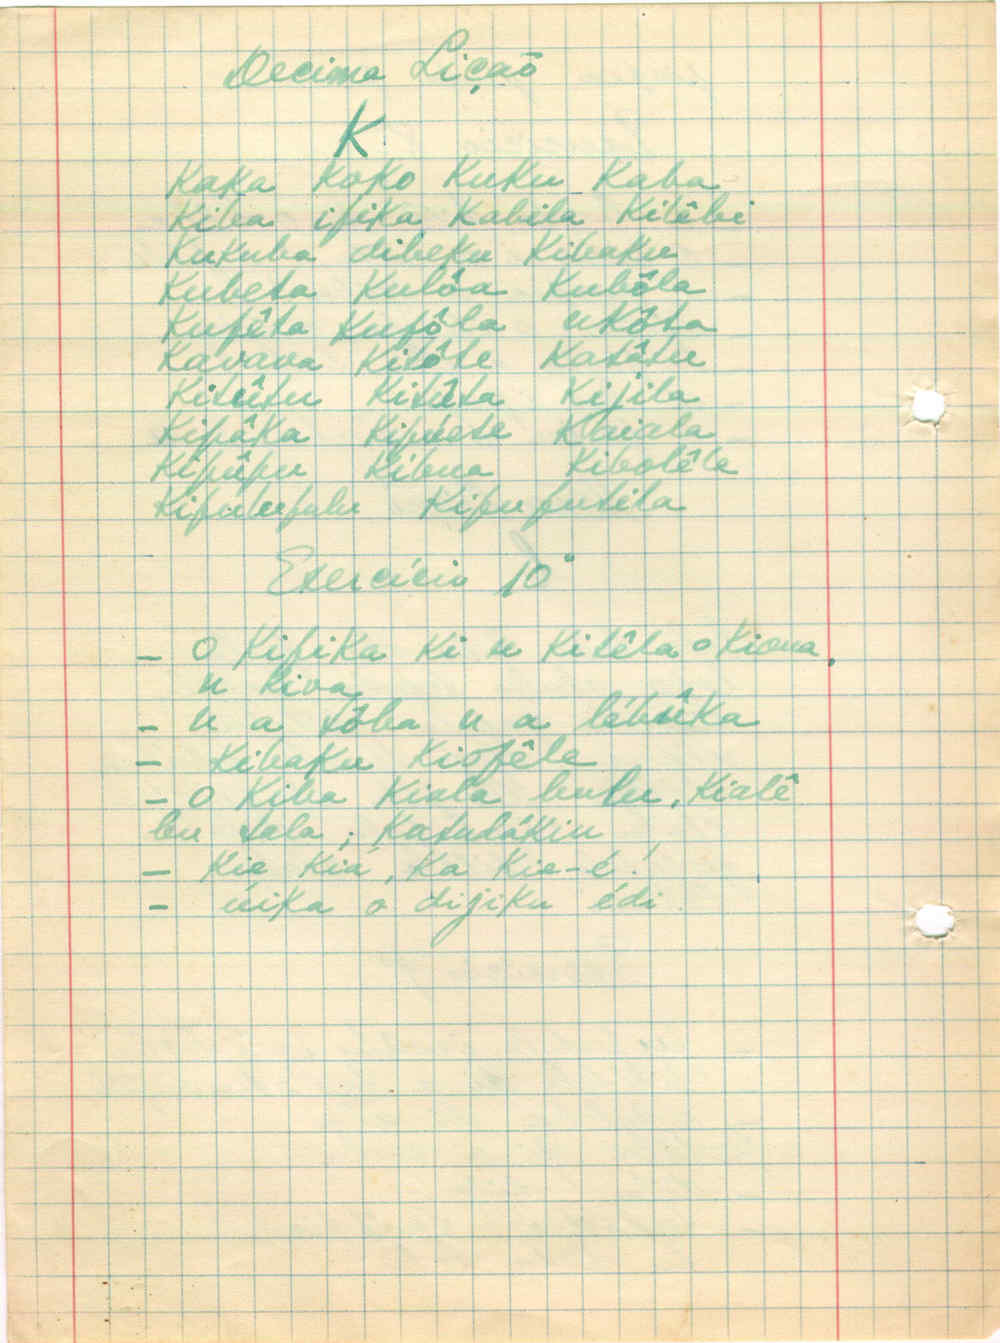 Decima Liçaõ
K
Kaka Koko Kuku Kaba
Kiba ifika Kabila Kitêbi
Kukuba dibeku Kibaku
Kubeta Kulôa Kubôla
Kufêta Kufôla ukôta
Kavava Kitôte Katâtu
Kitûtu Kitûta Kijila
Kipâka Kipuete Kaiala
Kipûpu Kibua Kibolêle
Kifulufulu Kipuputila
Exercício 10º
- O Kifika Ki u Kitêla o Kioua,
u Kiva
- u a tôba u a lébûka
- Kibaku Kiofêle
- O Kiba Kiala bulu, Kialê
bu tala; Katulákiu
- Kie Kiá, Ka Kie-é!
- úika o dijiku édi.